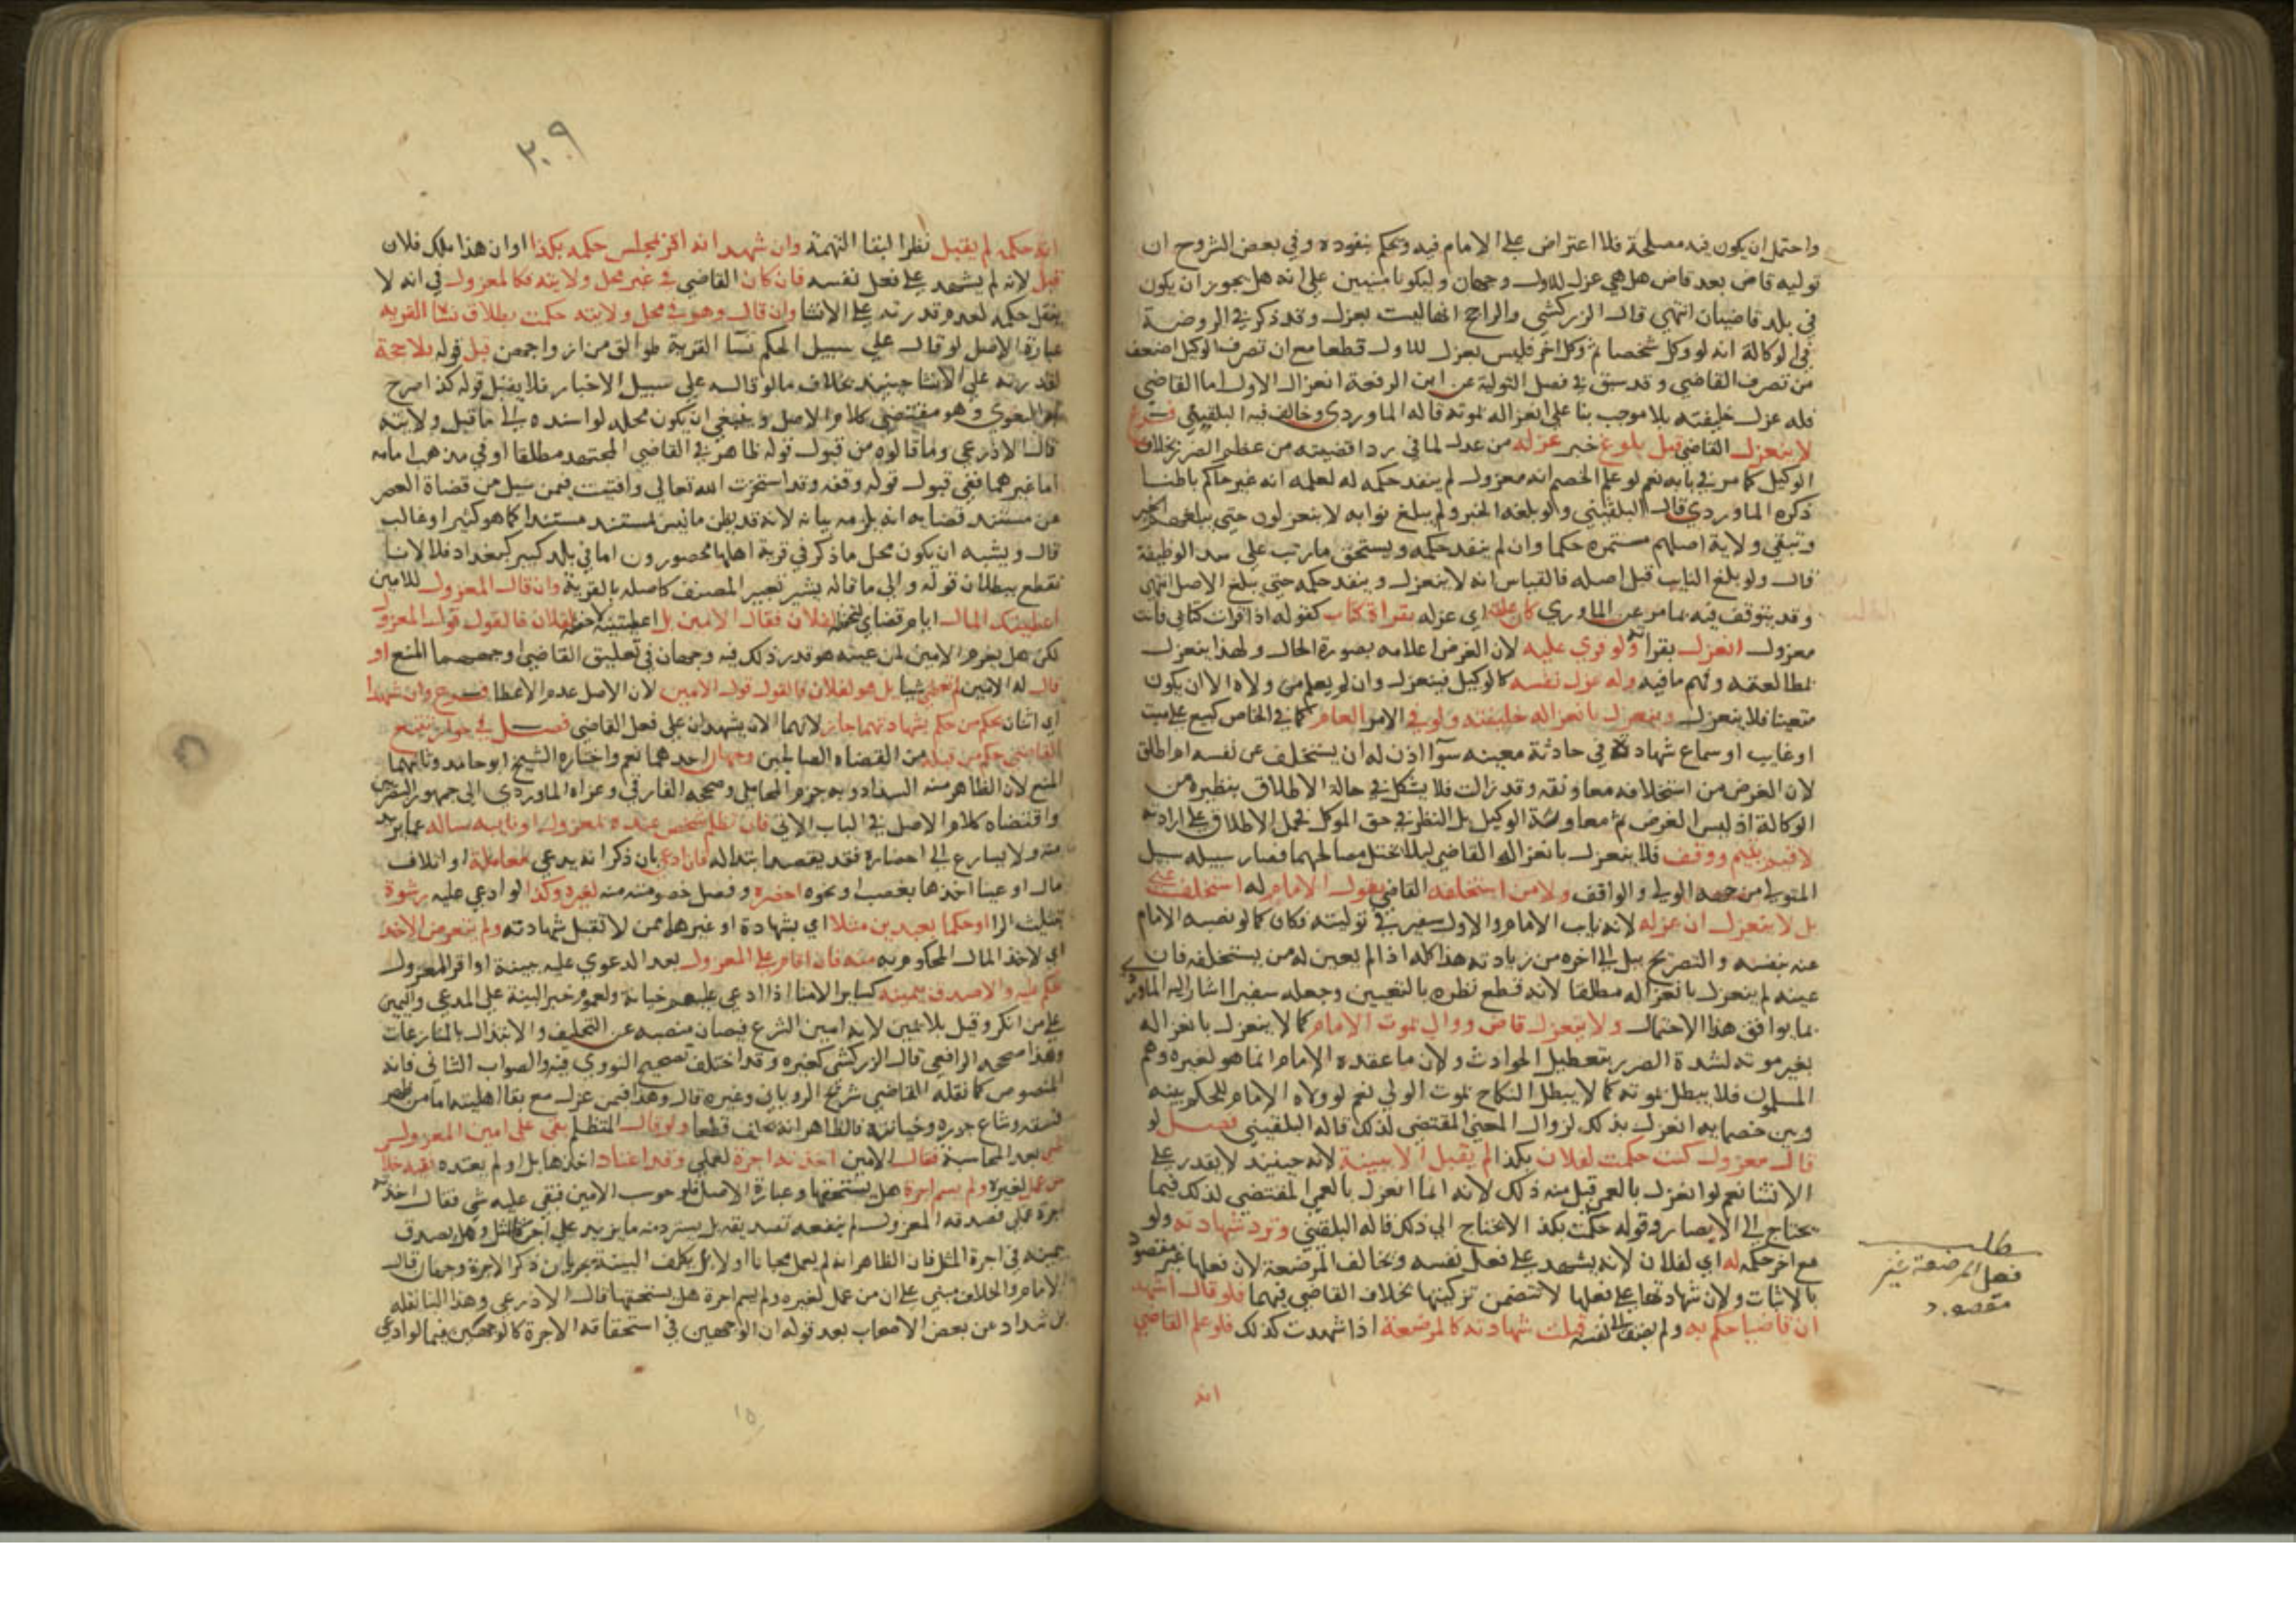 واحتمل ان يكون فيه مصلحة فلا اعتراض على الامام فيه ويحكم بنفوذه وفي بعض الشروح ان
توليه قاض بعد قاض هل هي عزل للاول وجهان وليكونا مبنيين على انه هل يجوز ان يكون
في بلد قاضيان انتهى قال الزركشي والراجح انها ليست بعزل وقد ذكر في الروضة
في الوكالة انه لو وكل شخصا ثم وكل اخر فليس بعزل للاول قطعا مع ان تصرف الوكيل اضعف
من تصرف القاضي وقد سبق في فصل التولية عن ابن الرفعة انعزال الاول اما القاضي
فله عزل خليفته بلا موجب بنا على انعزاله بموته قاله الماوردي وخالف فيه البلقيني فرع
لا ينعزل القاضي قبل بلوغ خبر عزله من عدل لما في رد اقضيته من عظم الضرر بخلاف
الوكيل كما مر في بابه نعم لو علم الخصم انه معزول لم ينفذ حكمه له لعلمه انه غير حاكم باطنا
ذكره الماوردي قال البلقيني ولو بلغه الخبر ولم يبلغ نوابه لا ينعزلون حتى يبلغهم الخبر
وتبقى ولاية اصلهم مستمرة حكما وان لم ينفذ حكمه ويستحق ما رتب على سد الوظيفة
قال ولو بلغ النايب قبل اصله فالقياس انه لا ينعزل وينفذ حكمه حتى يبلغ الاصل انتهى
وقد يتوقف فيه بما مر عن الماوردي كان علق اي عزله بقراة كتاب كقوله اذا قرات كتابي فانت
معزول انعزل بقراته ولو قري عليه لان الغرض اعلامه بصورة الحال ولهذا ينعزل
بمطالعته وفهم ما فيه وله عزل نفسه كالوكيل فينعزل وان لم يعلم من ولاه الا ان يكون
متعينا فلا ينعزل وينعزل بانعزاله خليفته ولو في الامر العام كما في الخاص كبيع على ميت
او غايب او سماع شهادة في حادثة معينه سوآ اذن له ان يستخلف عن نفسه ام اطلق
لان الغرض من استخلافه معاونته وقد زالت فلا يشكل في حالة الاطلاق بنظيره من
الوكالة اذ ليس الغرض ثم معاونة الوكيل بل النظر في حق الموكل فحمل الاطلاق على ارادته
لا قيم يتيم ووقف فلا ينعزل بانعزال القاضي ليلا تختل مصالحهما فصار سبيله سبيل
المتولي من جهة الولي والواقف ولا من استخلفه القاضي بقول الامام له استخلف عني
بل لا ينعزل ان عزله لانه نايب الامام والاول سفير في توليته فكان كما لو نصبه الامام
عنه بنفسه والتصريح ببل الى اخره من زيادته هذا كله اذا لم يعين له من يستخلفه فان
عينه لم ينعزل بانعزاله مطلقا لانه قطع نظره بالتعيين وجعله سفيرا اشار اليه الماوردي
بما يوافق هذا الاحتمال ولا ينعزل قاض ووال بموت الامام كما لا ينعزل بانعزاله
بغير موته لشدة الضرر بتعطيل الحوادث ولان ما عقده الامام انما هو لغيره وهم
المسلمون فلا يبطل بموته كما لا يبطل النكاح بموت الولي نعم لو ولاه الامام للحكم بينه
وبين خصمايه انعزل بذلك لزوال المعنى المقتضي لذلك قاله البلقيني فصل لو
قال معزول كنت حكمت لفلان بكذا لم يقبل الا ببينة لانه حينيذ لا يقدر على
الانشا نعم لو انعزل بالعمى قبل منه ذلك لانه انما انعزل بالعمى المقتضي لذلك فيما
يحتاج الى الابصار وقوله حكمت بكذا لا يحتاج الى ذلك قاله البلقيني وترد شهادته ولو
مع اخر حكمه له اي لفلان لانه يشهد على فعل نفسه وتخالف المرضعة لان فعلها غير مقصود
بالاثبات ولان شهادتها على فعلها لا تتضمن تزكيتها بخلاف القاضي فيهما فلو قال اشهد
ان قاضيا حكم به ولم يضف الى نفسه قبلت شهادته كالمرضعة اذا شهدت كذلك فلو علم القاضي
انه
مطلب
فعل المرضعة غير
مقصود
٣٠٩
انه حكمه لم يقبل نظرا لبقا التهمة وان شهد انه اقر بمجلس حكمه بكذا او ان هذا ملك فلان
قبل لانه لم يشهد على فعل نفسه فان كان القاضي في غير محل ولايته فكالمعزول في انه لا
ينقل حكمه لعدم قدرته على الانشا وان قال وهو في محل ولايته حكمت بطلاق نسا القرية
عبارة الاصل لو قال على سبيل الحكم نسآ القرية طوالق من ازواجهن قبل قوله بلا حجة
لقدرته على الانشا حينيذ بخلاف ما لو قاله على سبيل الاخبار فلا يقبل قوله كذا صرح
به البغوي وهو مقتضى كلام الاصل وينبغي ان يكون محله لو اسنده الى ما قبل ولايته
قال الاذرعي وما قالوه من قبول قوله ظاهر في القاضي المجتهد مطلقا او في مذهب امامه
اما غيرهما ففي قبول قوله وقفه وقد استخرت الله تعالى وافتيت فيمن سيل من قضاة العصر
عن مستند قضايه انه يلزمه بيانه لانه قد يظن ما ليس بمستند مستندا كما هو كثير او غالب
قال ويشبه ان يكون محل ما ذكر في قرية اهلها محصورون اما في بلد كبير كبغداد فلا لانا
نقطع ببطلان قوله والى ما قاله يشير تعبير المصنف كاصله بالقرية وان قال المعزول للامين
اعطيتك المال ايام قضاي لتحفظه لفلان فقال الامين بل اعطيتنيه لفلان فالقول قول المعزول
لكن هل يغرم الامين لمن عينه هو قدر ذلك فيه وجهان في تعليق القاضي اوجههما المنع او
قال له الامين لم تعطني شيا بل هو لفلان فالقول قول الامين لان الاصل عدم الاعطا فرع وان شهد
اي اثنان بحكم من حكم بشهادتهما جاز لانهما الان يشهدان على فعل القاضي فصل في جواز تتبع
القاضي حكم من قبله من القضاه الصالحين وجهان احدهما نعم واختاره الشيخ ابو حامد وثانيهما
المنع لان الظاهر منه السداد وبه جزم المحاملي وصححه الفارقي وعزاه الماوردي الى جمهور البصريين
واقتضاه كلام الاصل في الباب الاتي فان تظلم شخص عنده بمعزول او نايبه ساله عما يريد
منه ولا يسارع الى احضاره فقد يقصد ابتذاله فان ادعى بان ذكر انه يدعي معاملة او اتلاف
مال او عينا اخذها بغصب او نحوه احضره وفصل خصومته منه لغيره وكذا لو ادعى عليه رشوة
بتثليث الرا او حكما بعبدين مثلا اي بشهادة او غيرهما ممن لا تقبل شهادته ولم يتعرض لاخذ
اي لاخذ المال المحكوم به منه فان اقام على المعزول بعد الدعوى عليه بينة او اقر المعزول
حكم عليه والا صدق بيمينه كساير الامنا اذا ادعي عليهم خيانة ولعموم خبر البينة على المدعي واليمين
على من انكر وقيل بلا يمين لانه امين الشرع فيصان منصبه عن التحليف والابتذال بالمنازعات
وهذا صححه الرافعي قال الزركشي كغيره وقد اختلف تصحيح النووي فيه والصواب الثاني فانه
المنصوص كما نقله القاضي شريح الروياني وغيره قال وهذا فيمن عزل مع بقا اهليته اما من ظهر
فسقه وشاع جوره وخيانته فالظاهر انه يحلف قطعا ولو قال المتظلم بقي على امين المعزول
شي بعد المحاسبة فقال الامين اخذته اجرة لعملي وقد اعتاد اخذها بل او لم يعتده
من عمل لغيره ولم يسم اجرة هل يستحقها وعبارة الاصل فلو حوسب الامين فبقي عليه شي فقال اخذته
اجرة عملي فصدقه المعزول لم ينفعه تصديقه بل يسترد منه ما يزيد على اجرة المثل وهل يصدق
بيمينه في اجرة المثل فان الظاهر انه لم يعمل مجانا او لا بل يكلف البينة بجريان ذكر الاجرة وجهان قال
الامام والخلاف مبني على ان من عمل لغيره ولم يسم اجرة هل يستحقها قال الاذرعي وهذا البنا نقله
بن شداد عن بعض الاصحاب بعد قوله ان الوجهين في استحقاقه الاجرة كالوجهين فيما لو ادعى